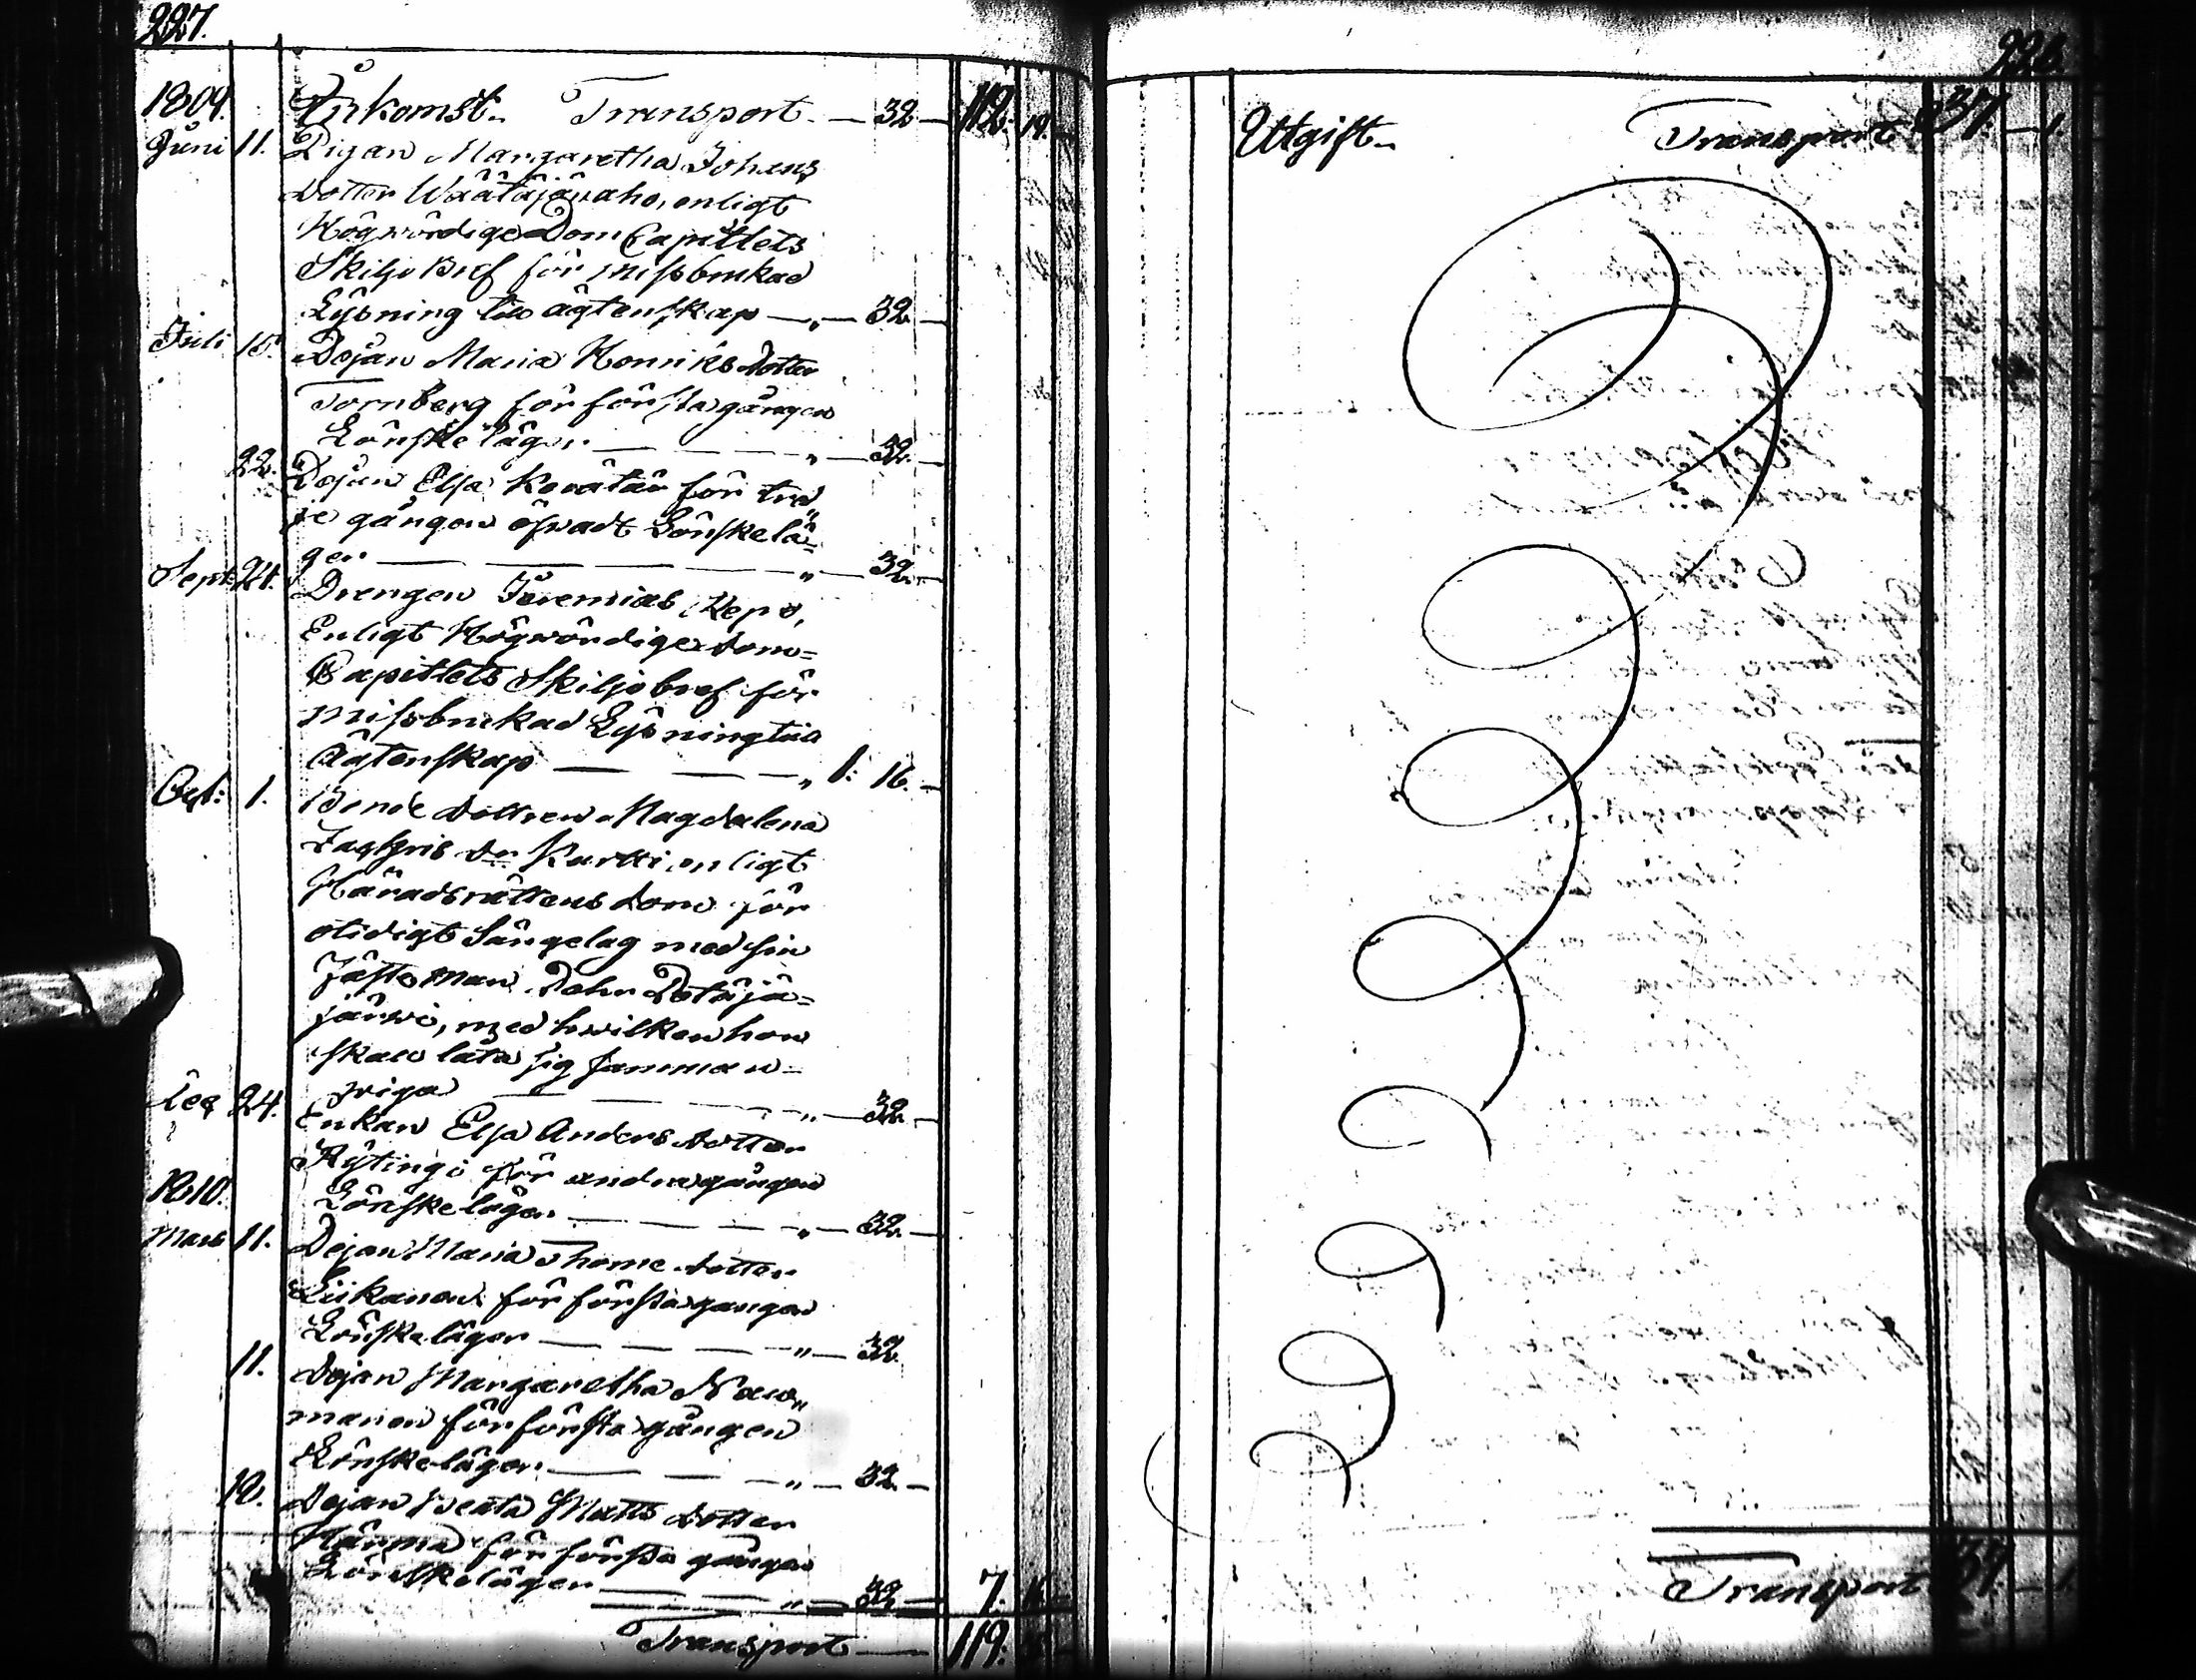 227.
1809. Inkomst. Transport — 32 — 112. 14.
Juni 11. Pigan Margaretha Johans
Dotter Wäätäjänaho, enligt
Högwördige Dom Capitlets
Skiljo Bref för missbrukad
Lysning till ägtenskap — „ — 32 —
Juli 15. Dejan Maria Henriks dotter
Tornberg för första gången
Lönskeläger. — — — „ — 32. —
22. Dejan Elsa Kerätär för tred„
je gången öfwadt Lönskelä=
ger — — — — „ — 32. —
Sept: 24. Drengen Jeremias Kepo,
Enligt Högwördige Dom=
Capitlets Skiljobref för
missbrukad Lysning till
Ägtenskap — — — „ 1: 16. —
Oct: 1. Bonde Dottren Magdalena
Zachris Dr Kurtti, enligt
Häradsrättens dom för
otidigt Sängelag med sin
Fästeman Johan
järwi, med hwilken hon
skall låta sig samman-
wiga — — — „ — 32 —
24. Enkan Elsa Anders dotter
Kytingi för andra gången
1810. Lönskeläger. — — — „ — 32. —
Mars 11. Dejan Maria Thome dotter
Liikanen för första gången
Lönskeläger — — — „ — 32
11. Dejan Margaretha Naw„
manen för första gången
Lönskeläger. — — — „ — 32. —
18. Dejan Beata Matts dotter
Härmä för första gången
Lönskeläger — — „ — 32 — 7. 16
Transport — 119:
Utgift. Transport 37. — 1.
Transport 37. — 1.